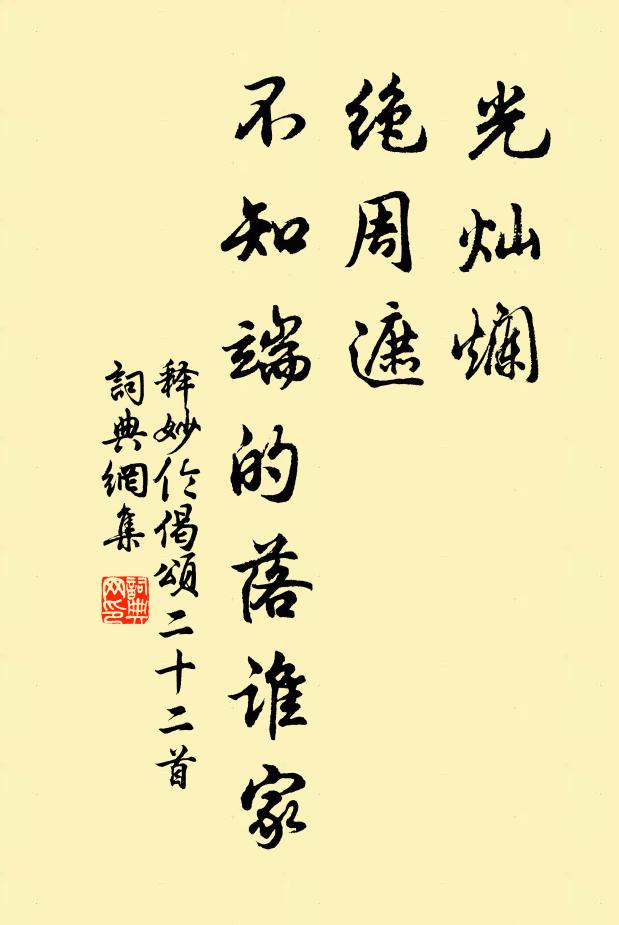 光灿爛
绝周遮
不知端的落谁家
释妙伦偈頌二十二首
詞典網集
詞典網印